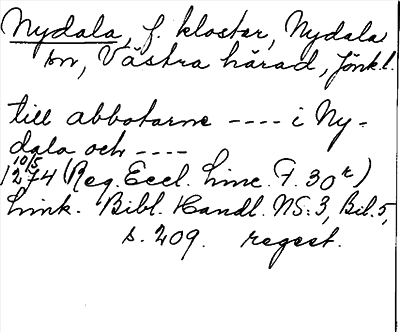 Nydala, f. kloster, Nydala
sn, Västra härad, Jönk.l.
till abbotarne ---- i Ny-
dala och ----
10/5
1274 (Reg. Eccl. Linc. F. 30r)
Link. Bibl. Handl. NS:3, Bil.5,
s. 209. regest.